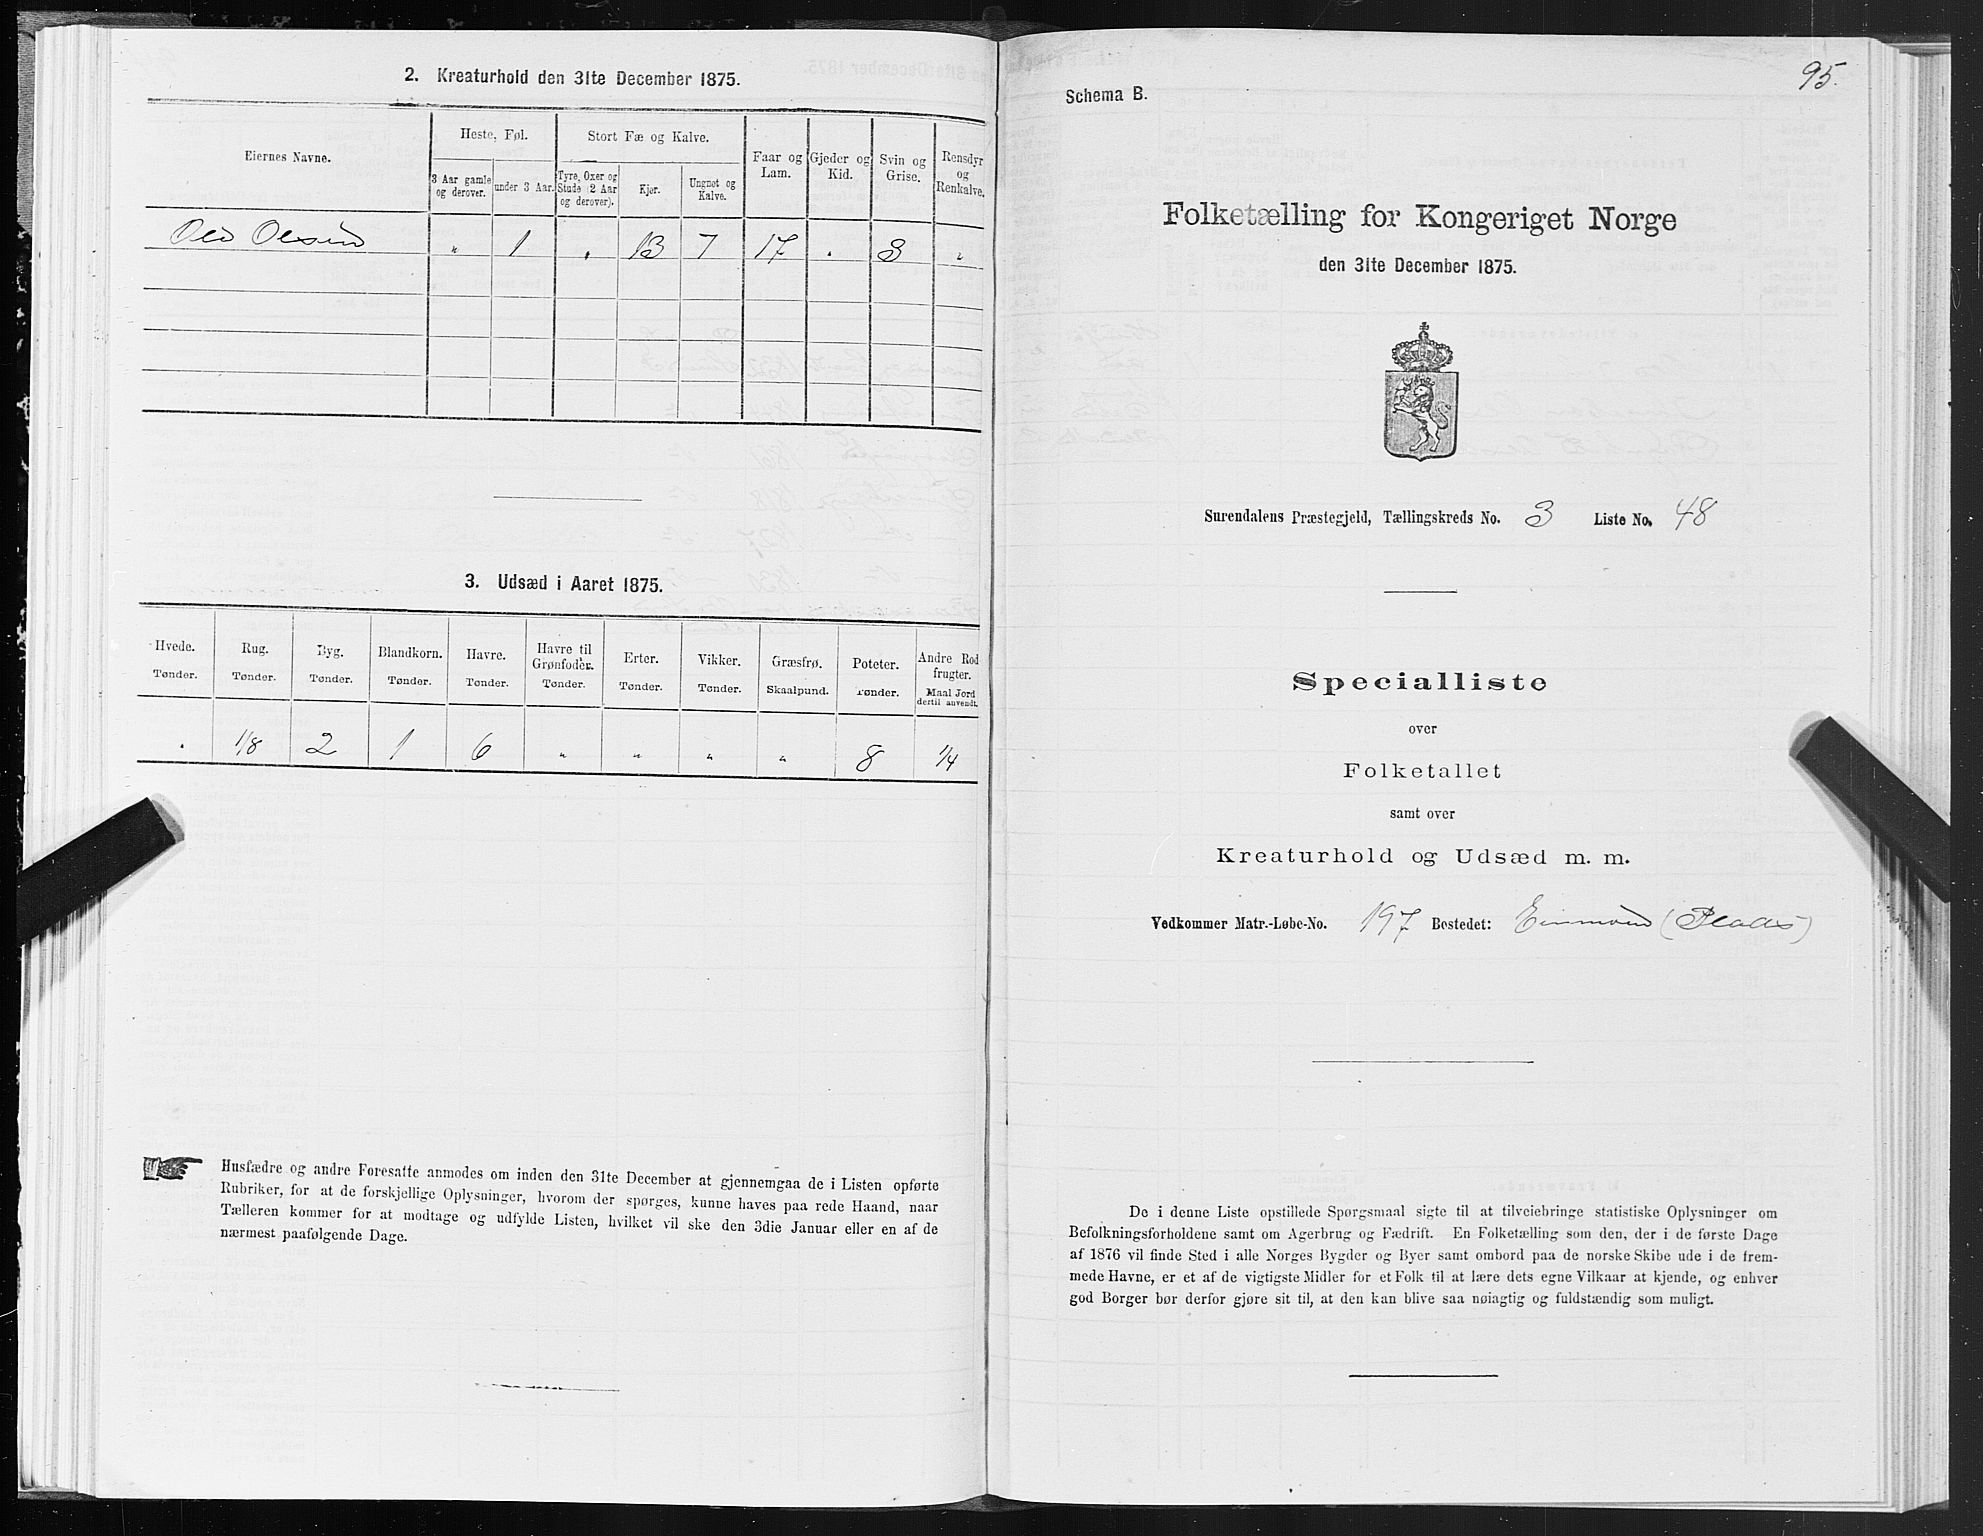 2. Kreaturhold den 31te December 1875.
Eiernes Navne.
Heste, Føl.
3 Aar gamle og derover.
under 3 Aar.
Stort Fæ og Kalve.
Tyre, Oxer og Stude (2 Aar og derover).
Kjør.
Ungnøt og Kalve.
Faar og Lam.
Gjeder og Kid.
Svin og Grise.
Rensdyr og Renkalve.
Ole Olsen " 1 " 13 7 17 " 3 "
3. Udsæd i Aaret 1875.
Hvede. Rug. Byg. Blandkorn. Havre. Havre til Grønfoder. Erter. Vikker. Græsfrø. Poteter. Andre Rodfrugter.
Tønder. Tønder. Tønder. Tønder. Tønder. Tønder. Tønder. Tønder. Skaalpund. Tønder. Maal Jord dertil anvendt.
" 1/8 2 1 6 " " " " 8 1/4
Husfædre og andre Foresatte anmodes om inden den 31te December at gjennemgaa de i Listen opførte
Rubriker, for at de forskjellige Oplysninger, hvorom der spørges, kunne haves paa rede Haand, naar
Tælleren kommer for at modtage og udfylde Listen, hvilket vil ske den 3die Januar eller en af de
nærmest paafølgende Dage.
95.
Schema B.
Folketælling for Kongeriget Norge
den 31te December 1875.
Surendalens Præstegjeld, Tællingskreds No. 3 Liste No. 48
Specialliste
over
Folketallet
samt over
Kreaturhold og Udsæd m. m.
Vedkommer Matr.-Løbe-No. 197 Bostedet:
De i denne Liste opstillede Spørgsmaal sigte til at tilveiebringe statistiske Oplysninger om
Befolkningsforholdene samt om Agerbrug og Fædrift. En Folketælling som den, der i de første Dage
af 1876 vil finde Sted i alle Norges Bygder og Byer samt ombord paa de norske Skibe ude i de frem-
mede Havne, er et af de vigtigste Midler for et Folk til at lære dets egne Vilkaar at kjende, og enhver
god Borger bør derfor gjøre sit til, at den kan blive saa nøiagtig og fuldstændig som muligt.